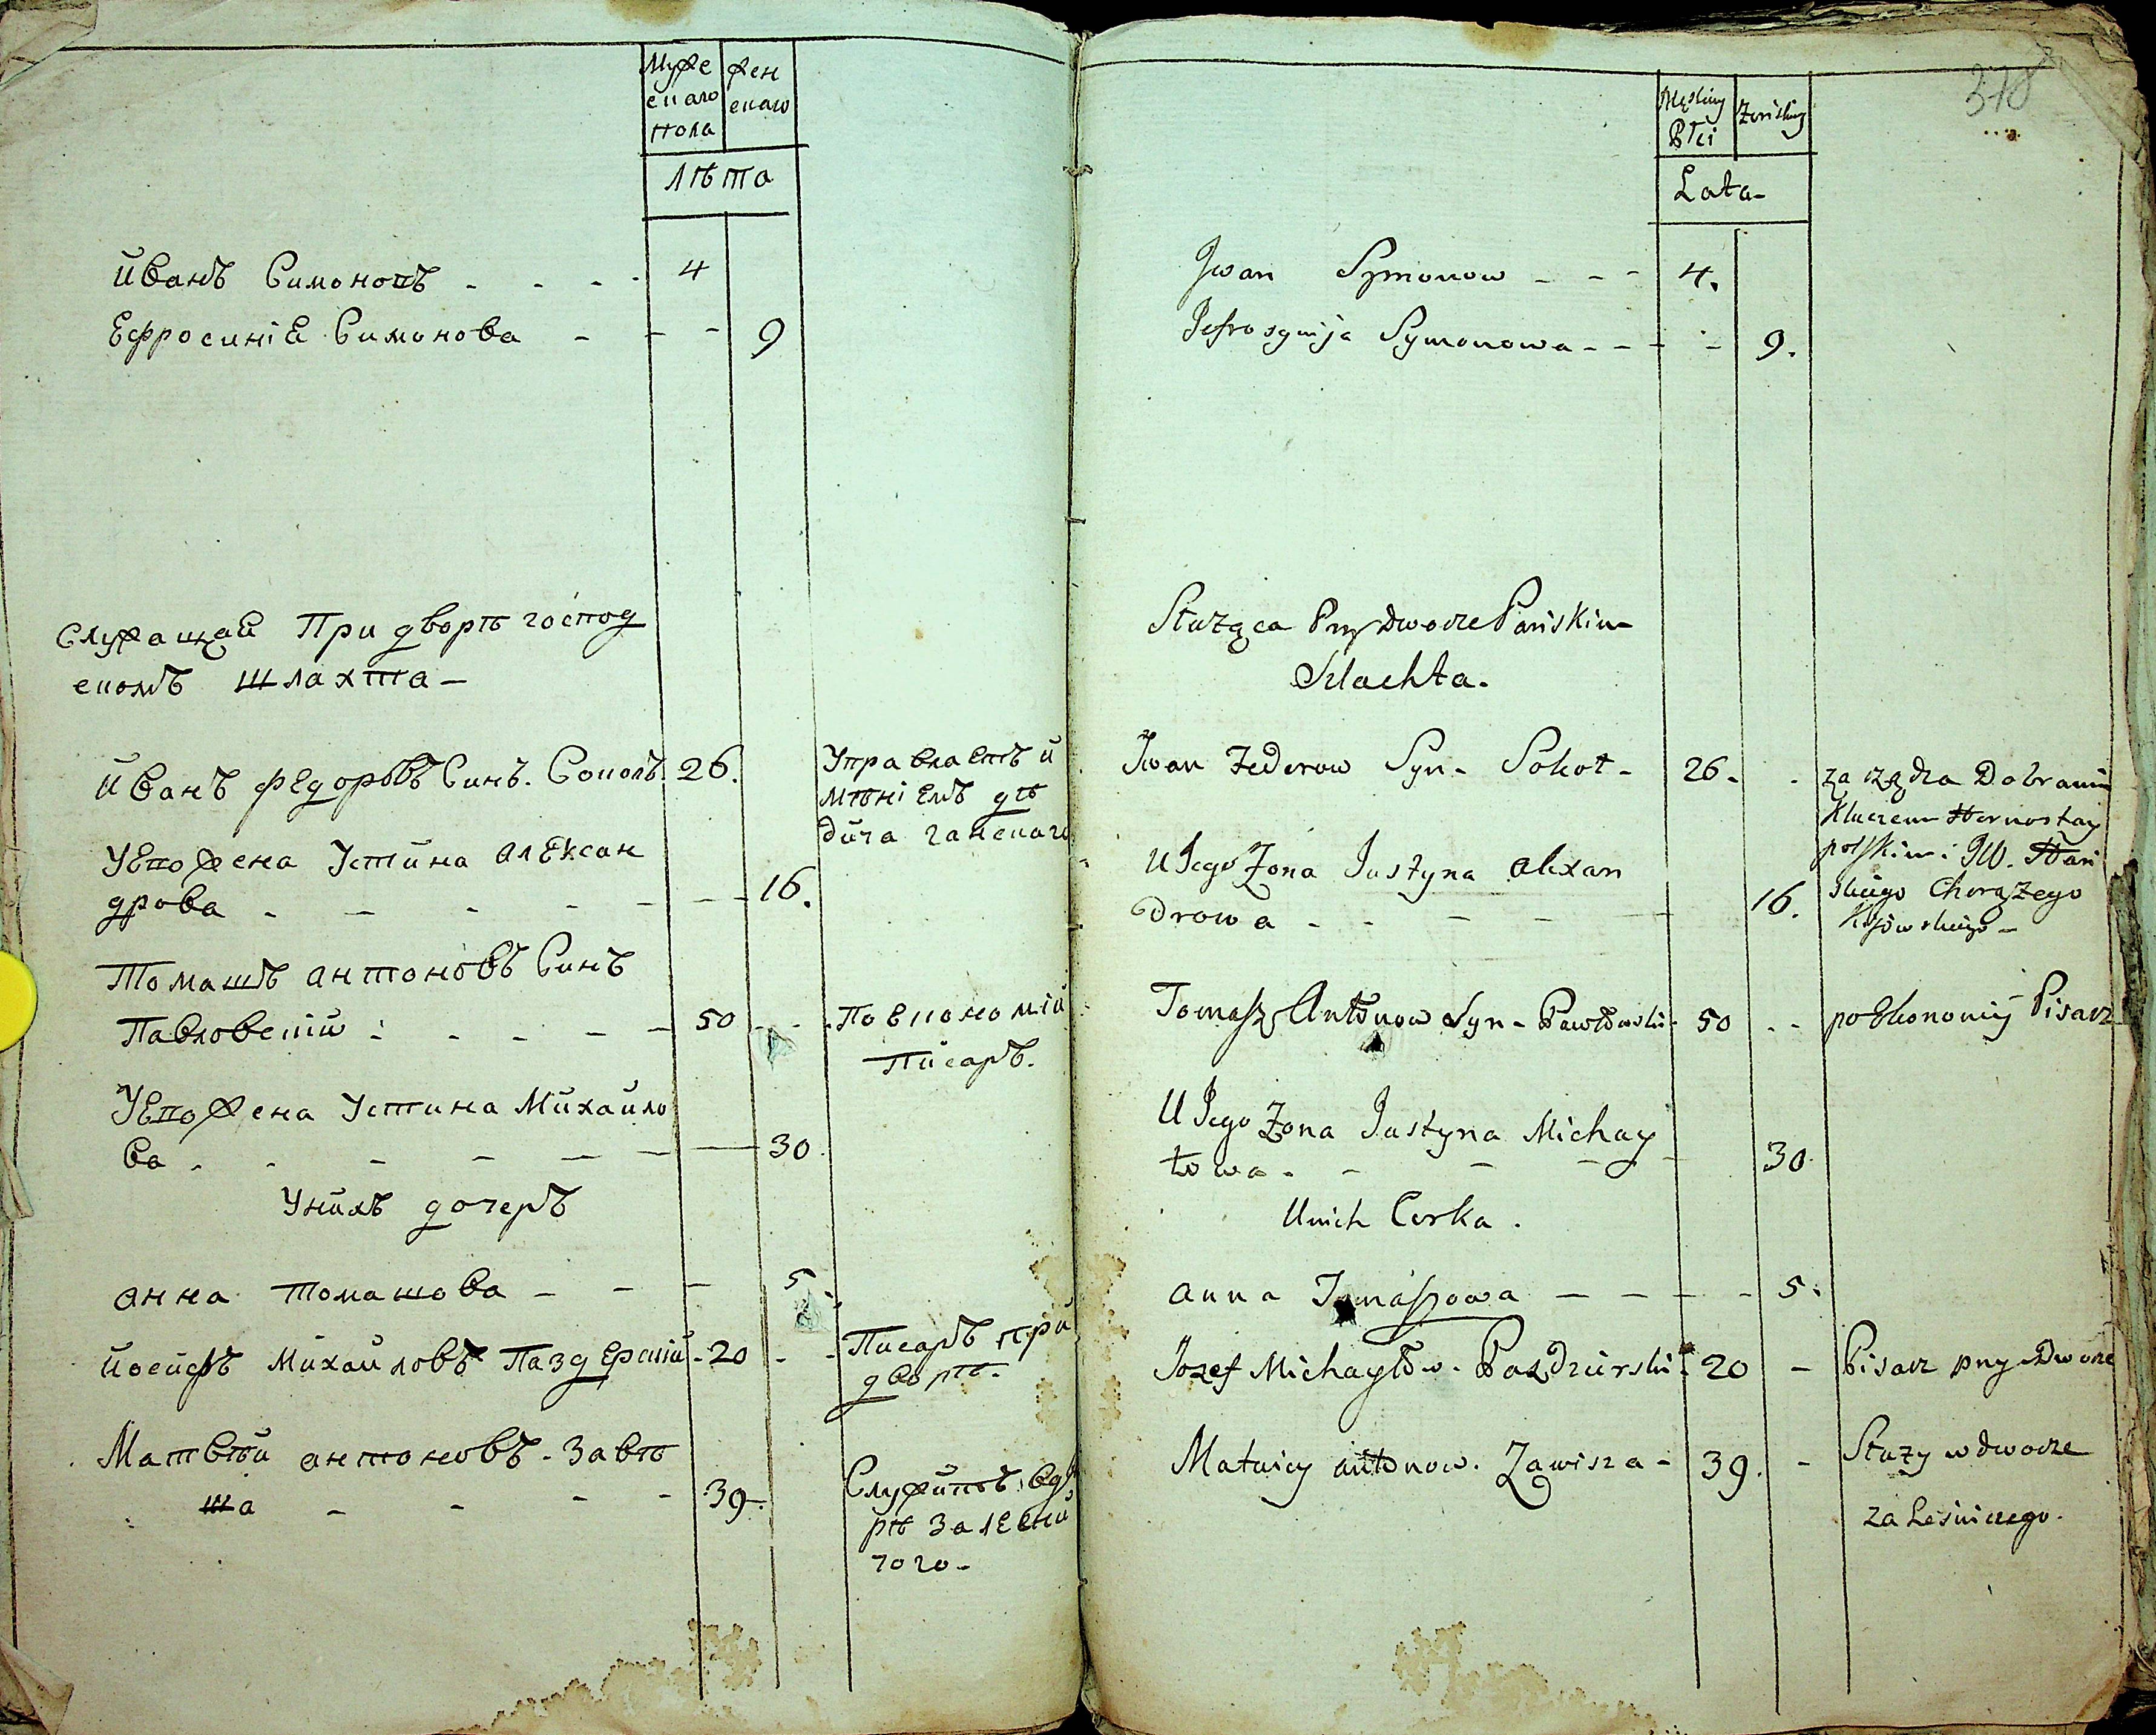 Муже Жен
скаго скаго
пола
лѣта
Иванъ Симоновъ - - - - 4
Ефросиніа Симонова - - - 9
Служащаа При дворѣ господ
скомъ шлахта -
Иванъ Федоровъ Синъ. Соколъ. 26.
Управлаетъ и
мѣніемъ дѣ
дича ганскаго
У Его Жена Устина Алексан
дрова - - - - - - - 16.
Томашъ Антоновъ Синъ
Павловскій - - - - - 50 - - .
По економіи
Писаръ.
У Его Жена Устина Михайло
ва - - - - - - - 30.
У нихъ дочеръ
Анна Томашова - - - 5
Иосифъ Михайловъ Паздерскій - 20 - -
Писаръ при
дворѣ.
Матвѣй Антоновъ - Завѣ
ша - - - - 39.
Служитъ вдво
рѣ за лесни
чого -
378
Męskiey Żeńskiey
Płci
Lata -
Jwan Symonow - - - 4.
Jefrosynija Symonowa - - - - 9.
Służąca Przy Dworze Pańskim
Szlachta.
Jwan Fedorow Syn - Sokoł - 26 - -
zarządza Dobrami
Kluczem Hornostay
polskim i JW. Hań
skiego Chorążego
Kijowskiego -
U Jego Żona Justyna Alexan
drowa - - - - - 16.
Tomasz Antonow Syn - Pawłowski - 50 - -
po Ekonomij Pisarz
U Jego Żona Justyna Michay
łowa - - - - - 30
U nich Corka.
Anna Tomaszowa - - - - 5.
Jozef Michayłow - Pazdzierski - 20 -
Pisarz przy Dworze
Matwiey Antonow. Zawisza - 39. -
Służy w dworze
za Leśniczego.